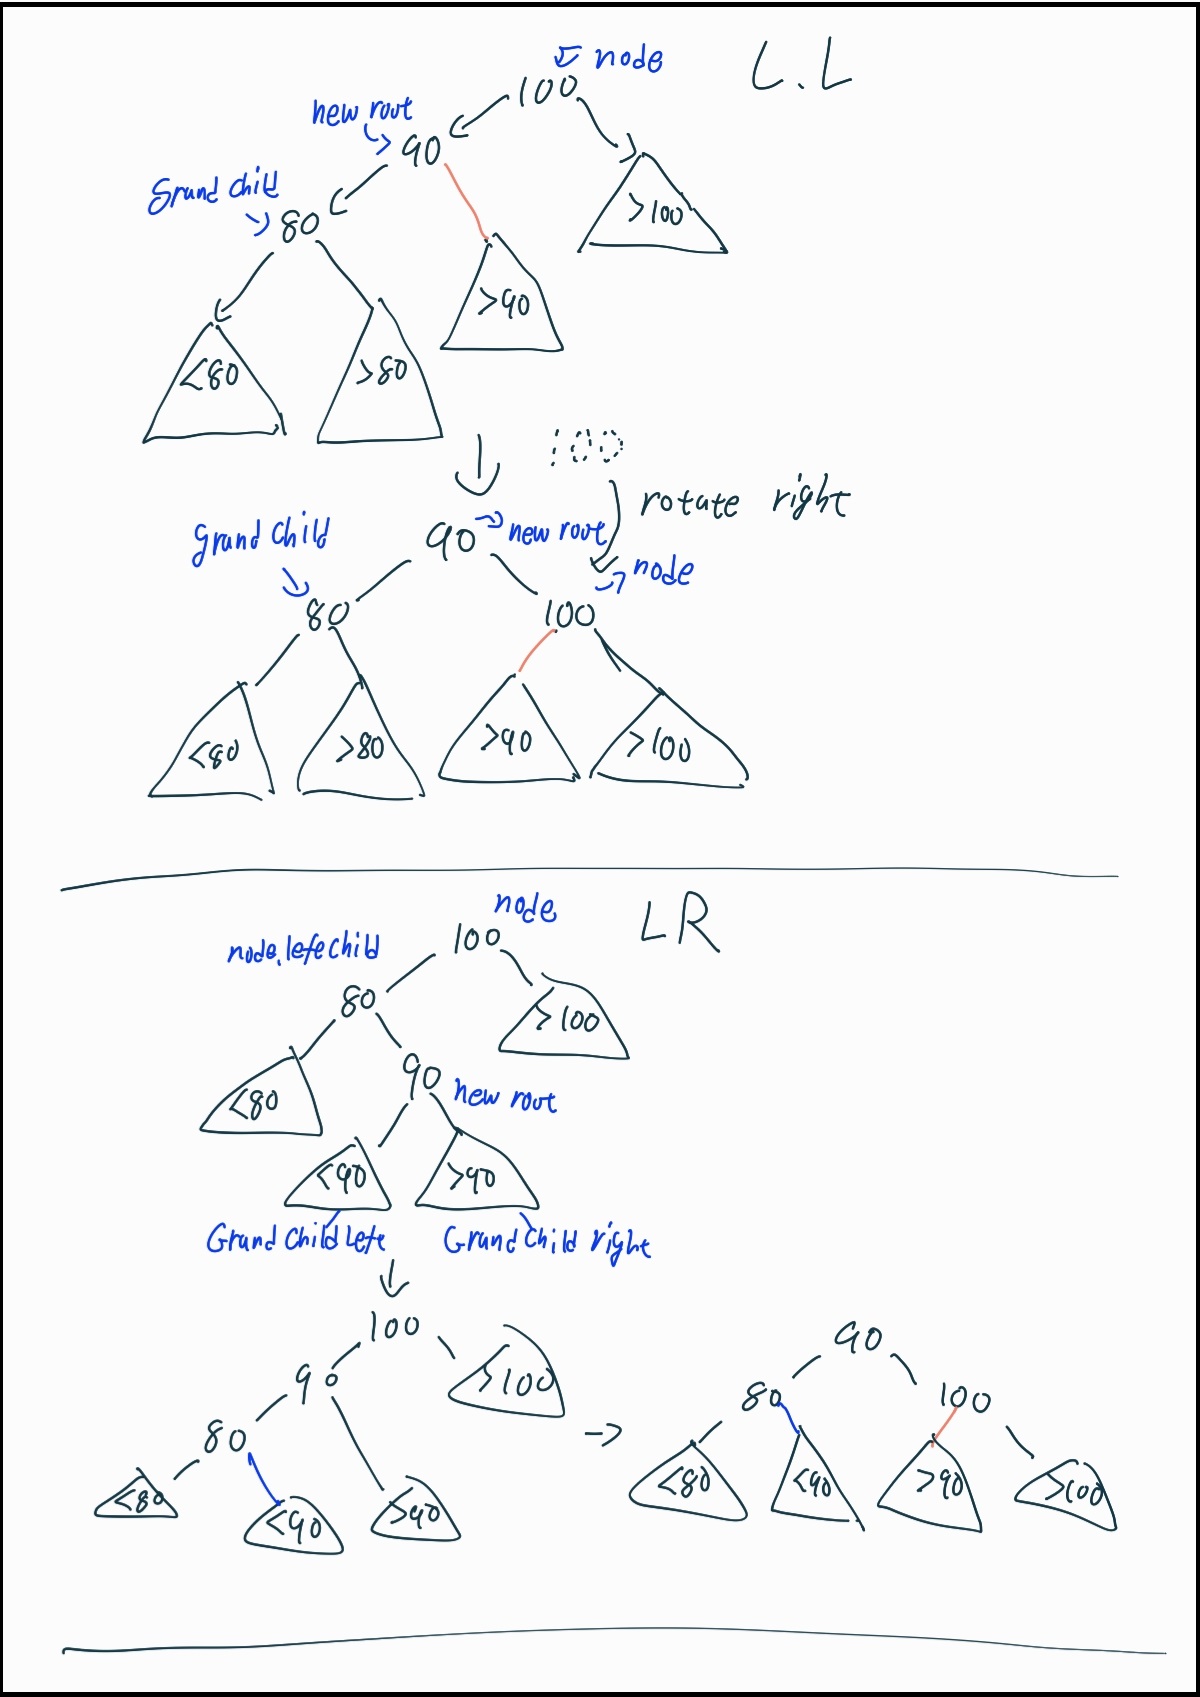 node
L.L
100
new root
90
Grand child
80
>100
>90
<80
>80
100
rotate right
grand child
90
new root
node
80
100
<80
>80
>90
>100
node
LR
100
node.lefe child
80
>100
90
<80
new root
<90
>90
Grand Child Lefe
Grand Child right
100
90
90
>100
80
80
100
<80
<90
>90
<80
<90
>90
>100